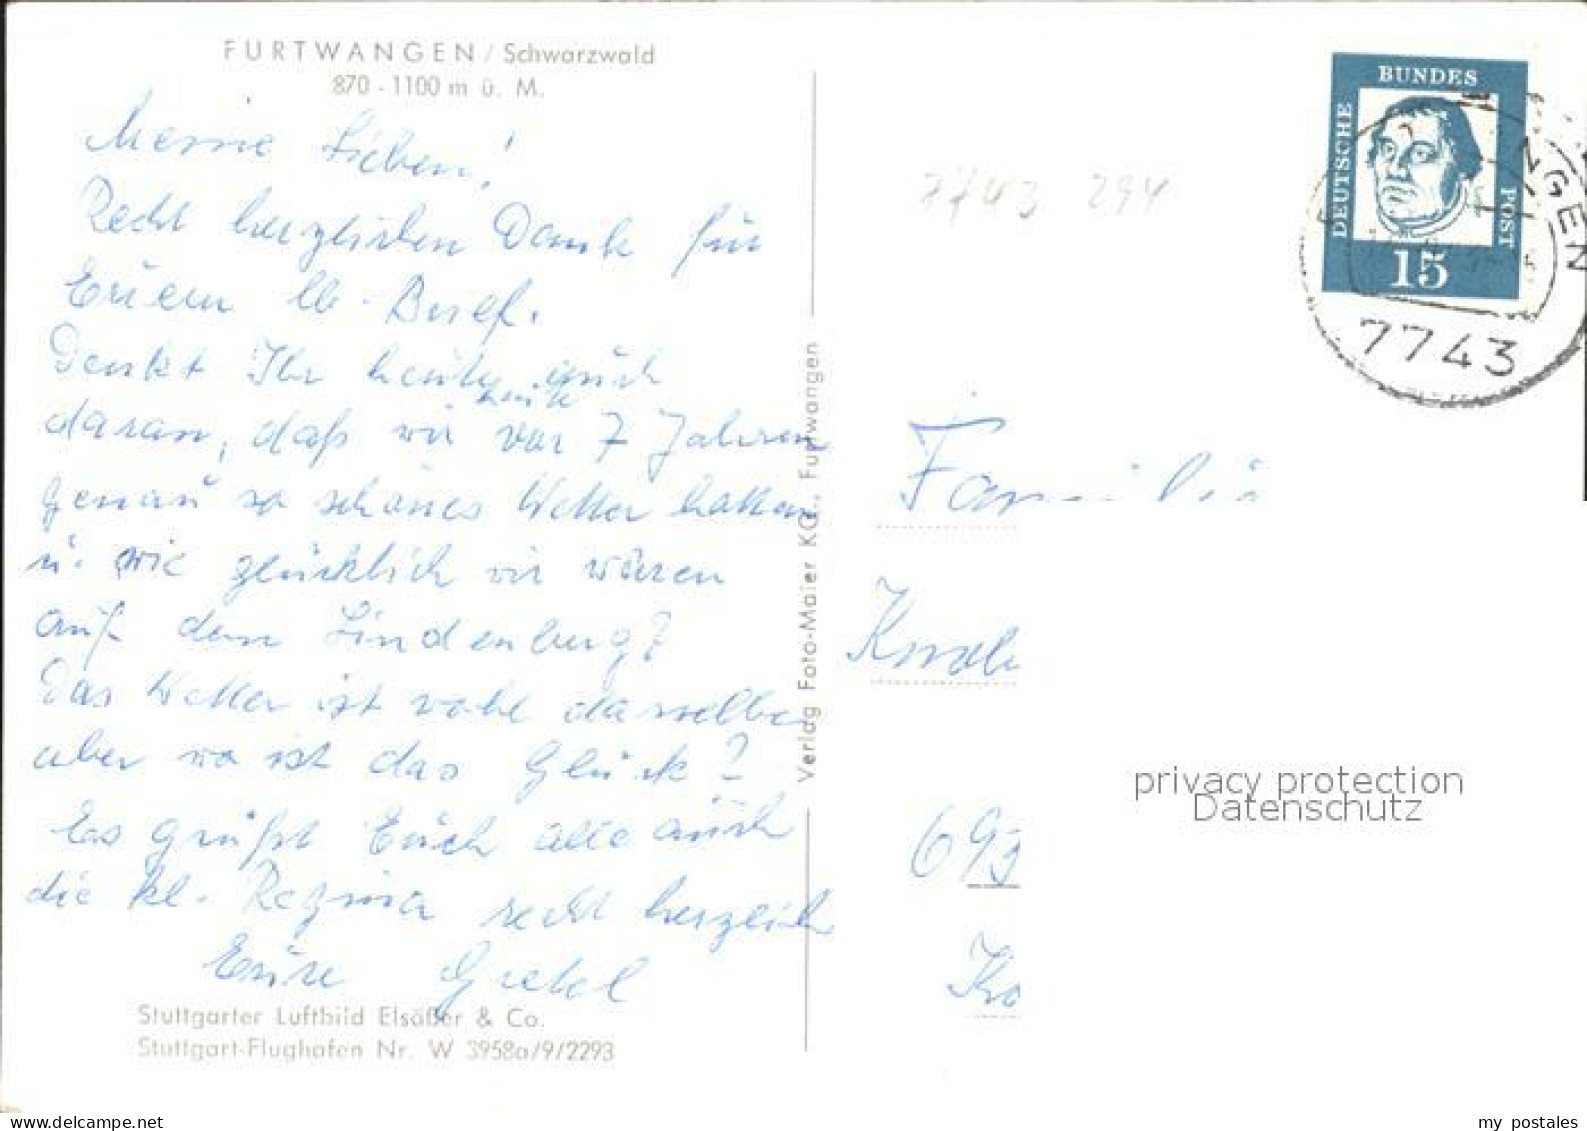 FURTWANGEN / Schwarzwald
870 - 1100 m ü. M.
Meine Lieben!
Recht herzlichen Dank für
Eüern lb. Brief.
Denkt Ihr heute aüch
daran, daß wir heute vor 7 Jahren
genaü so schönes Wetter hatten
ü. wie glücklich wir waren
aüf dem Lindenberg?
Das Wetter ist wohl dasselbe
aber wo ist das Glück?
Es grüßt Eüch alle aüch
die kl. Regina recht herzlich
Eüre Gretel
Stuttgarter Luftbild Elsäßer & Co.
Stuttgart-Flughafen Nr. W 3958a/9/2293
Verlag Foto-Maier KG., Furtwangen
7743 294
DEUTSCHE
BUNDES
POST
15
NGEN
7743
Familie
693
Ko
privacy protection
Datenschutz
my postales